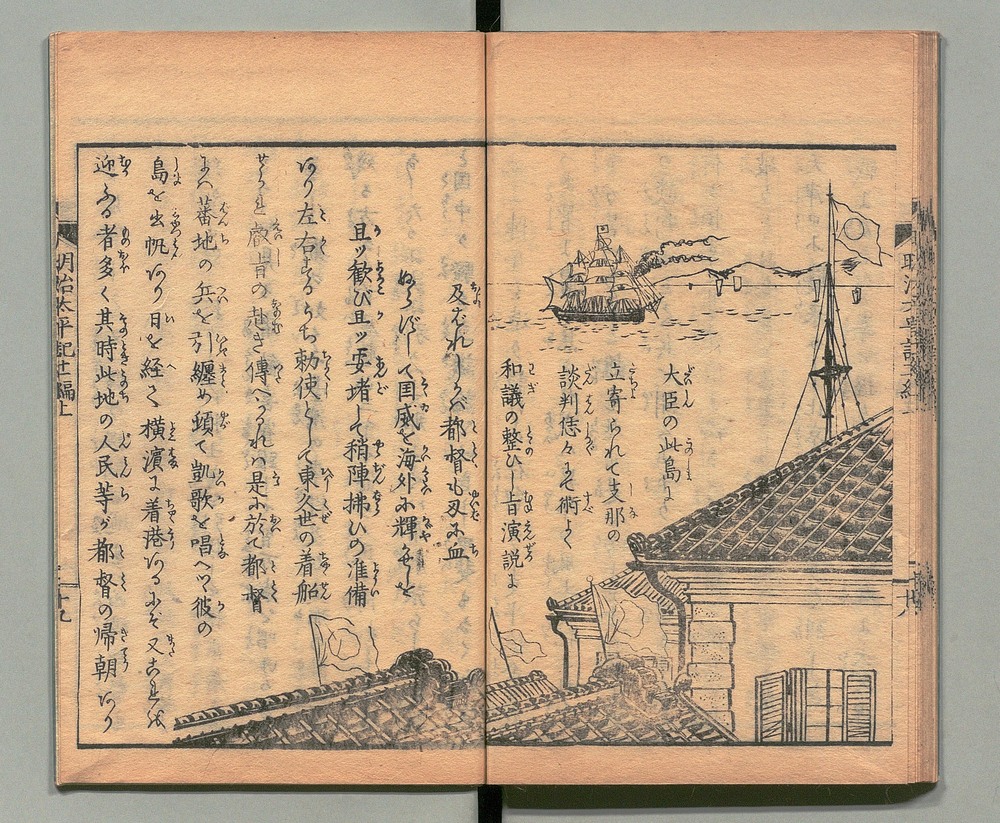 大臣の此島に
立寄られて支那の
談判悠々にて術よく
和議の整ひし旨演説に
及ばれしかバ都督も刄に血
ぬらずして国威を海外に輝かせしを
且ツ歓び且ツ安堵して稍陣拂ひの准備
あり左右するうち勅使として東久世の着船
せられ叡旨の赴き傳へられハ是に於て都督
にハ蕃地の兵を引纏め頓て凱歌を唱へツヽ彼の
島を出帆あり日を経て横濱に着港あるにぞ又これを
迎ふる者多く其時此地の人民等が都督の帰朝あり
明治太平記廿編上
十九